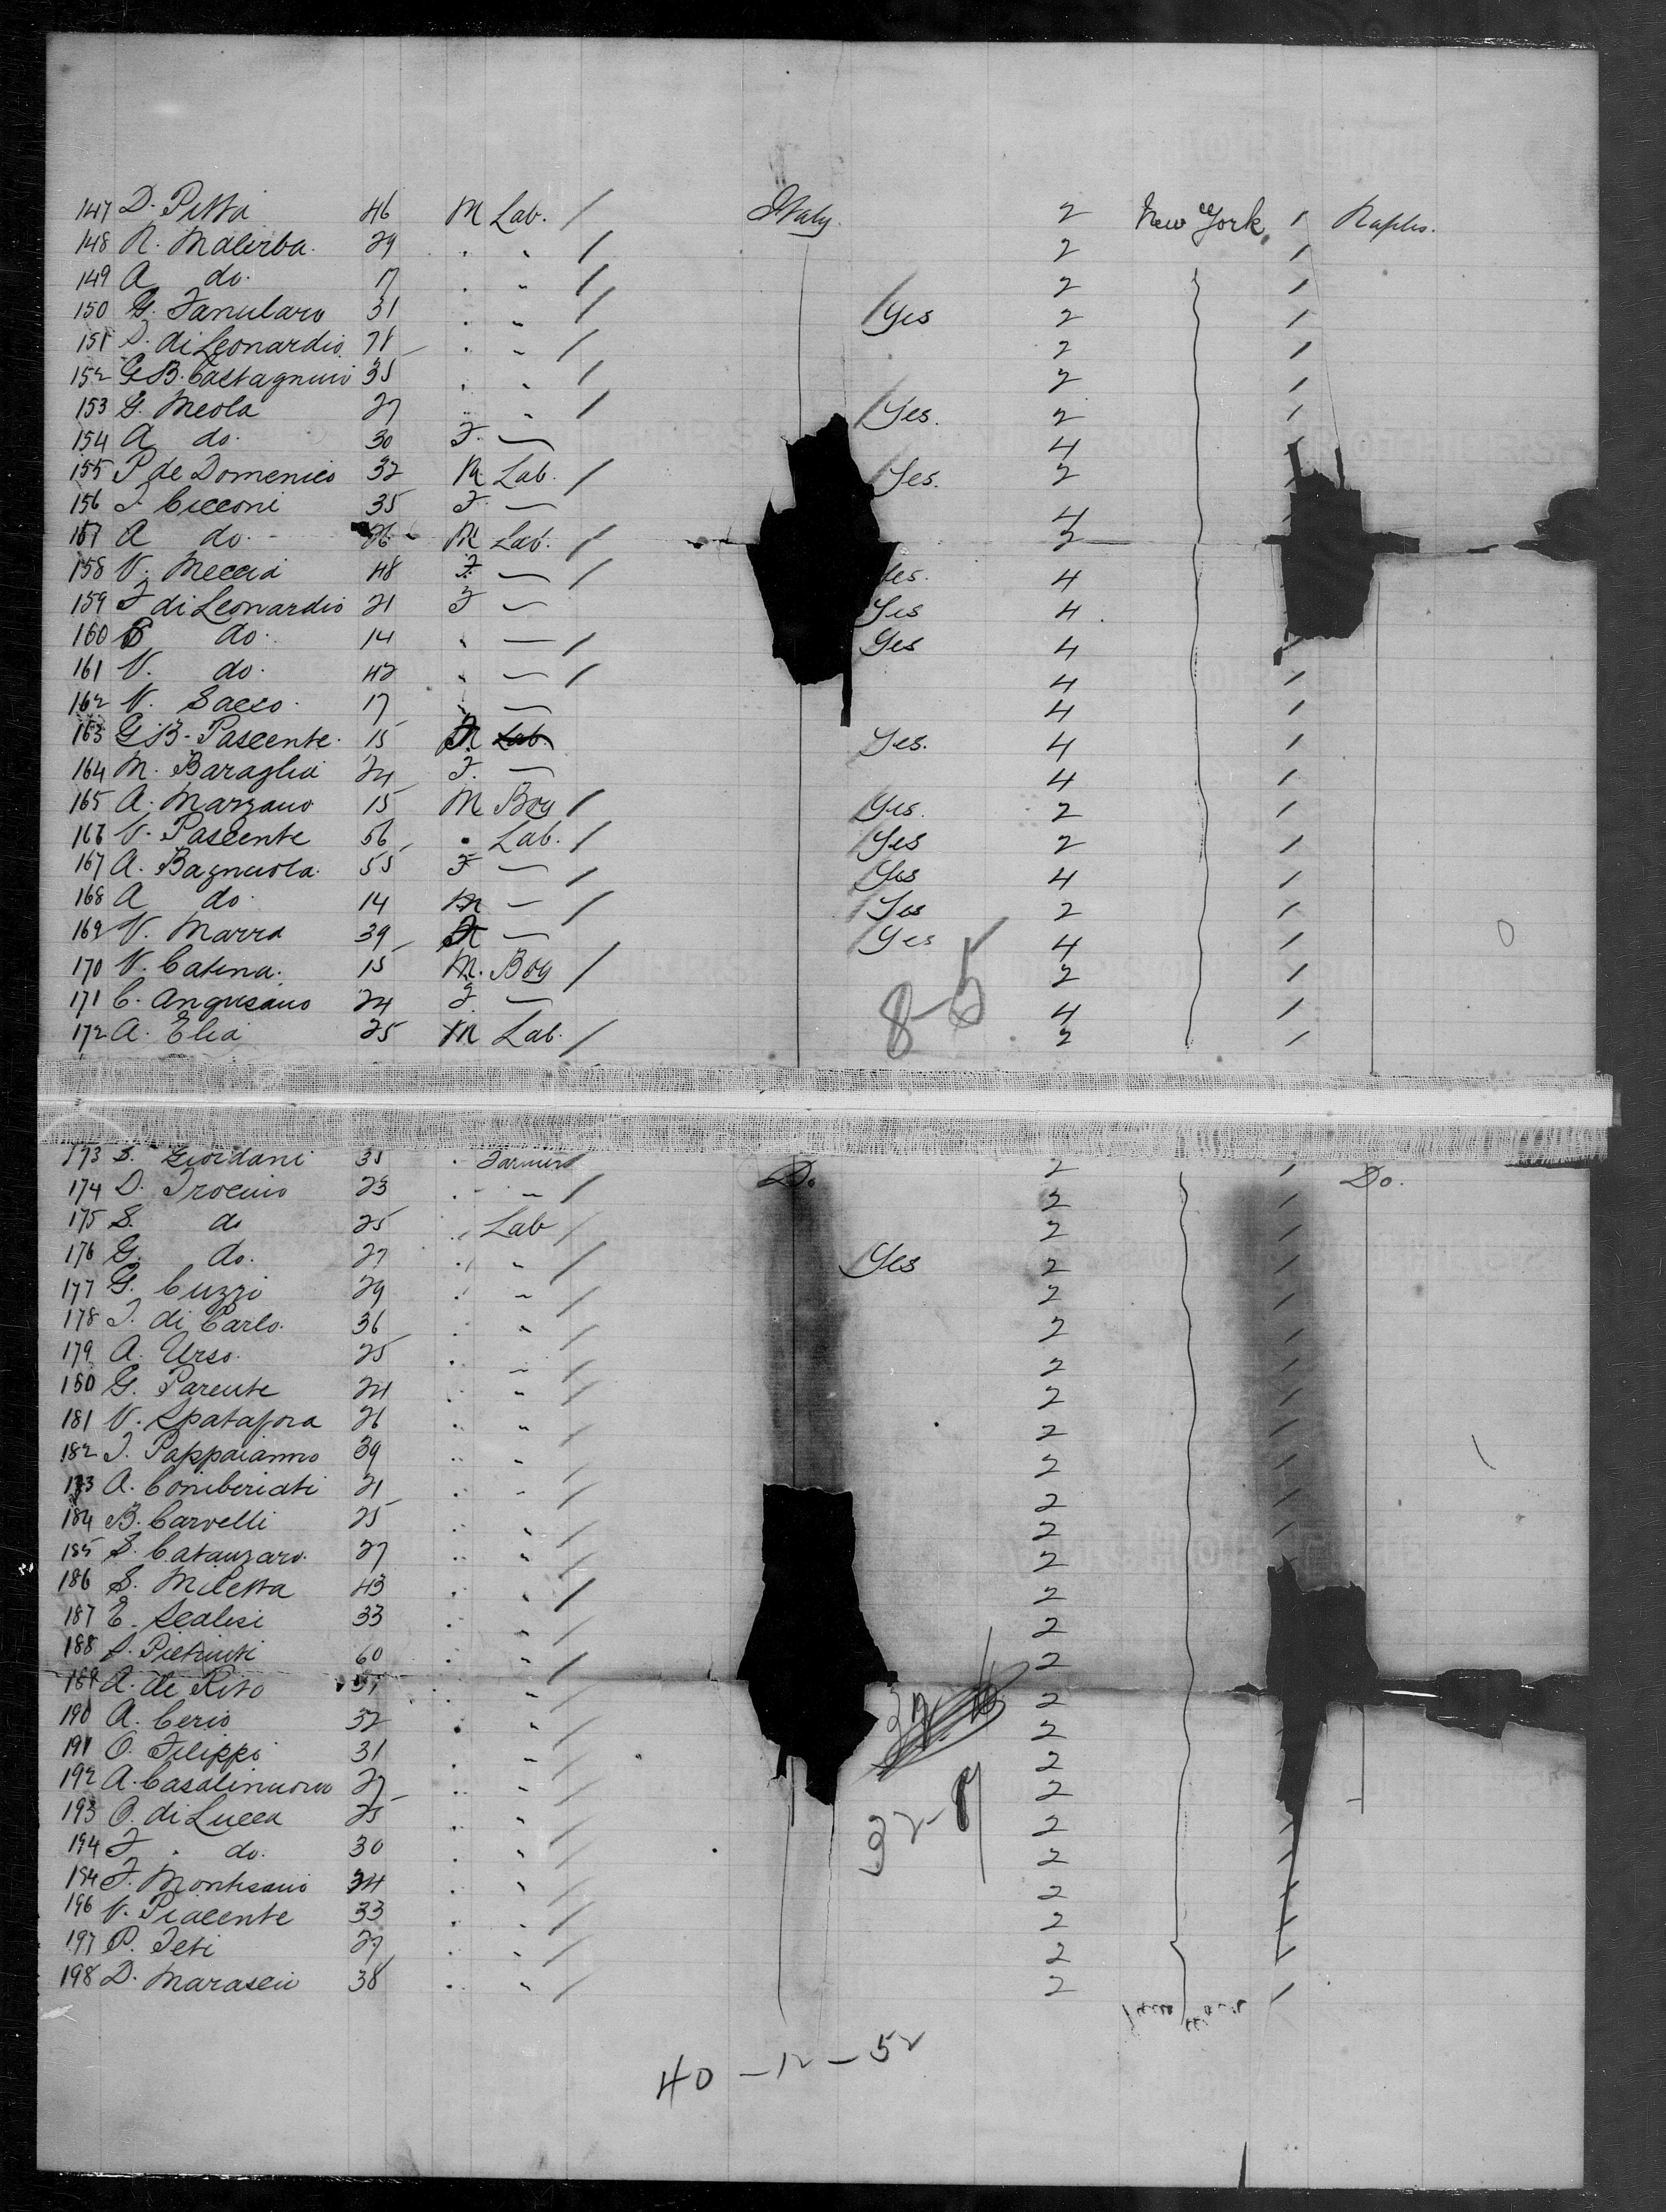 147 D. Petta 46 M Lab. / Italy. 2 New York / Naples.
148 N. Malerba. 29 . " / 2 /
149 A do. 17 . " / 2 /
150 G. Fanularo 31 . " / / Yes 2 /
151 D. di Leonardis 21 . " / 2 /
152 G.B. Castagnini 35 . " / 2 /
153 G. Meola 27 " " / / Yes. 2 /
154 A do. 30 F. — 4
155 P. de Domenico 32 M Lab. / / Yes. 2
156 F. Cicconi 35 F. — 4
157 A do. 26 M Lab. / 2
158 V. Meccia 48 F. — / 4
159 F di Leonardis 21 F — Yes 4
160 do. 14 " — / Yes 4
161 V. do. 42 " — / 4 /
162 V. Sacco. 17 — 4 /
163 G.B. Pascente. 15 Lab. Yes. 4 /
164 M. Baraglia 24 F. — 4 /
165 A. Marzano 15 M Boy / / Yes. 2 /
166 V. Pascente 56 " Lab. / / Yes 2 /
167 A. Bagnuola. 55 F — / / Yes 4 /
168 A do. 14 M — / / Yes 2 /
169 V. Marra 39 — / Yes 4 /
170 V. Catena. 15 M. Boy / 2 /
171 C. Angusano 24 F — 4 /
172 A. Elia 25 M Lab. / 2 /
8-5
173 S. Giordani 35 . Farmer / Do. 2 / Do.
174 D. Trocino 23 . " / 2 /
175 S. do 25 . Lab / 2 /
176 G. do. 27 . " / / Yes 2 /
177 G. Cuzzi 29 . " / 2 /
178 F. di Carlo. 36 . " / 2 /
179 A. Urso. 25 . " / 2 /
180 G. Parente 24 . " / 2 /
181 V. Spatafora 26 . " / 2 /
182 F. Pappaianno 39 . " / 2 /
183 A. Comberiati 21 . " / 2 /
184 B. Carvelli 25 . " / 2 /
185 S. Catanzaro. 27 . " / 2
186 S. Miletta 43 . " / 2
187 E. Scalisi 33 . " / 2
188 Pietrinti 60 . " / 2
189 A. de Rito . " / 2
190 A. Cerio 32 . " / 2
191 O. Filippi 31 . " / 2
192 A. Casalinuovo 27 . " / 2
193 O. di Lucca 25 . " / 2
32-8
194 F. do. 30 . " / 2
194 F. Montesano 24 . " / 2 /
196 V. Piacente 33 . " / 2 /
197 P. Teti 27 . " / 2 /
198 D. Marascio 38 . " / 2 /
40 – 12 – 52